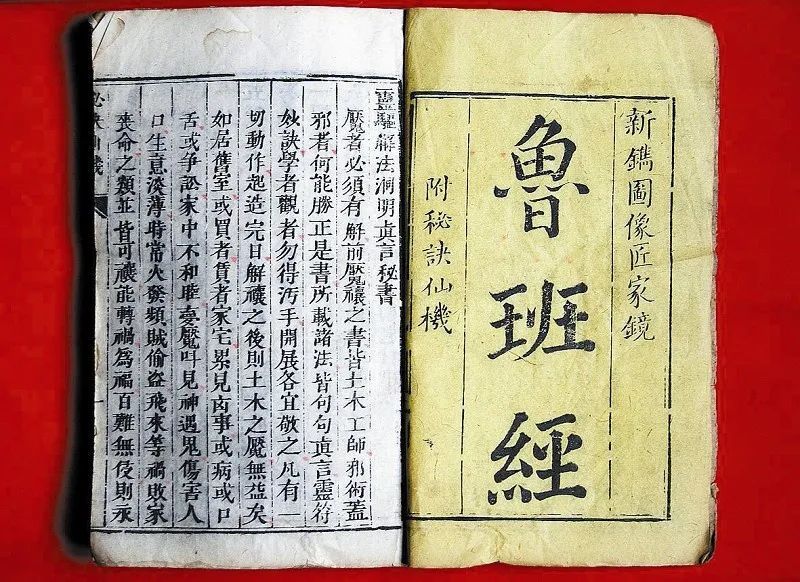 新鐫圖像匠家鏡
魯班經
附秘訣仙機
靈驅解法洞明真言秘書
魘者必須有解前魘禳之書皆土木工師邪術蓋
邪者何能勝正是書所載諸法皆句句真言靈符
妙訣學者觀者勿得汚手開展各宜敬之凡有一
切動作起造完日解禳之後則土木之魘無益矣
如居舊室或買者賃者家宅累見凶事或病或口
舌或争訟家中不和睡臺魘叫見神遇鬼傷害人
口生意淡薄時常火發頻賊偷盜飛來等禍敗家
喪命之類並皆可禳能轉禍爲福百難無侵則永